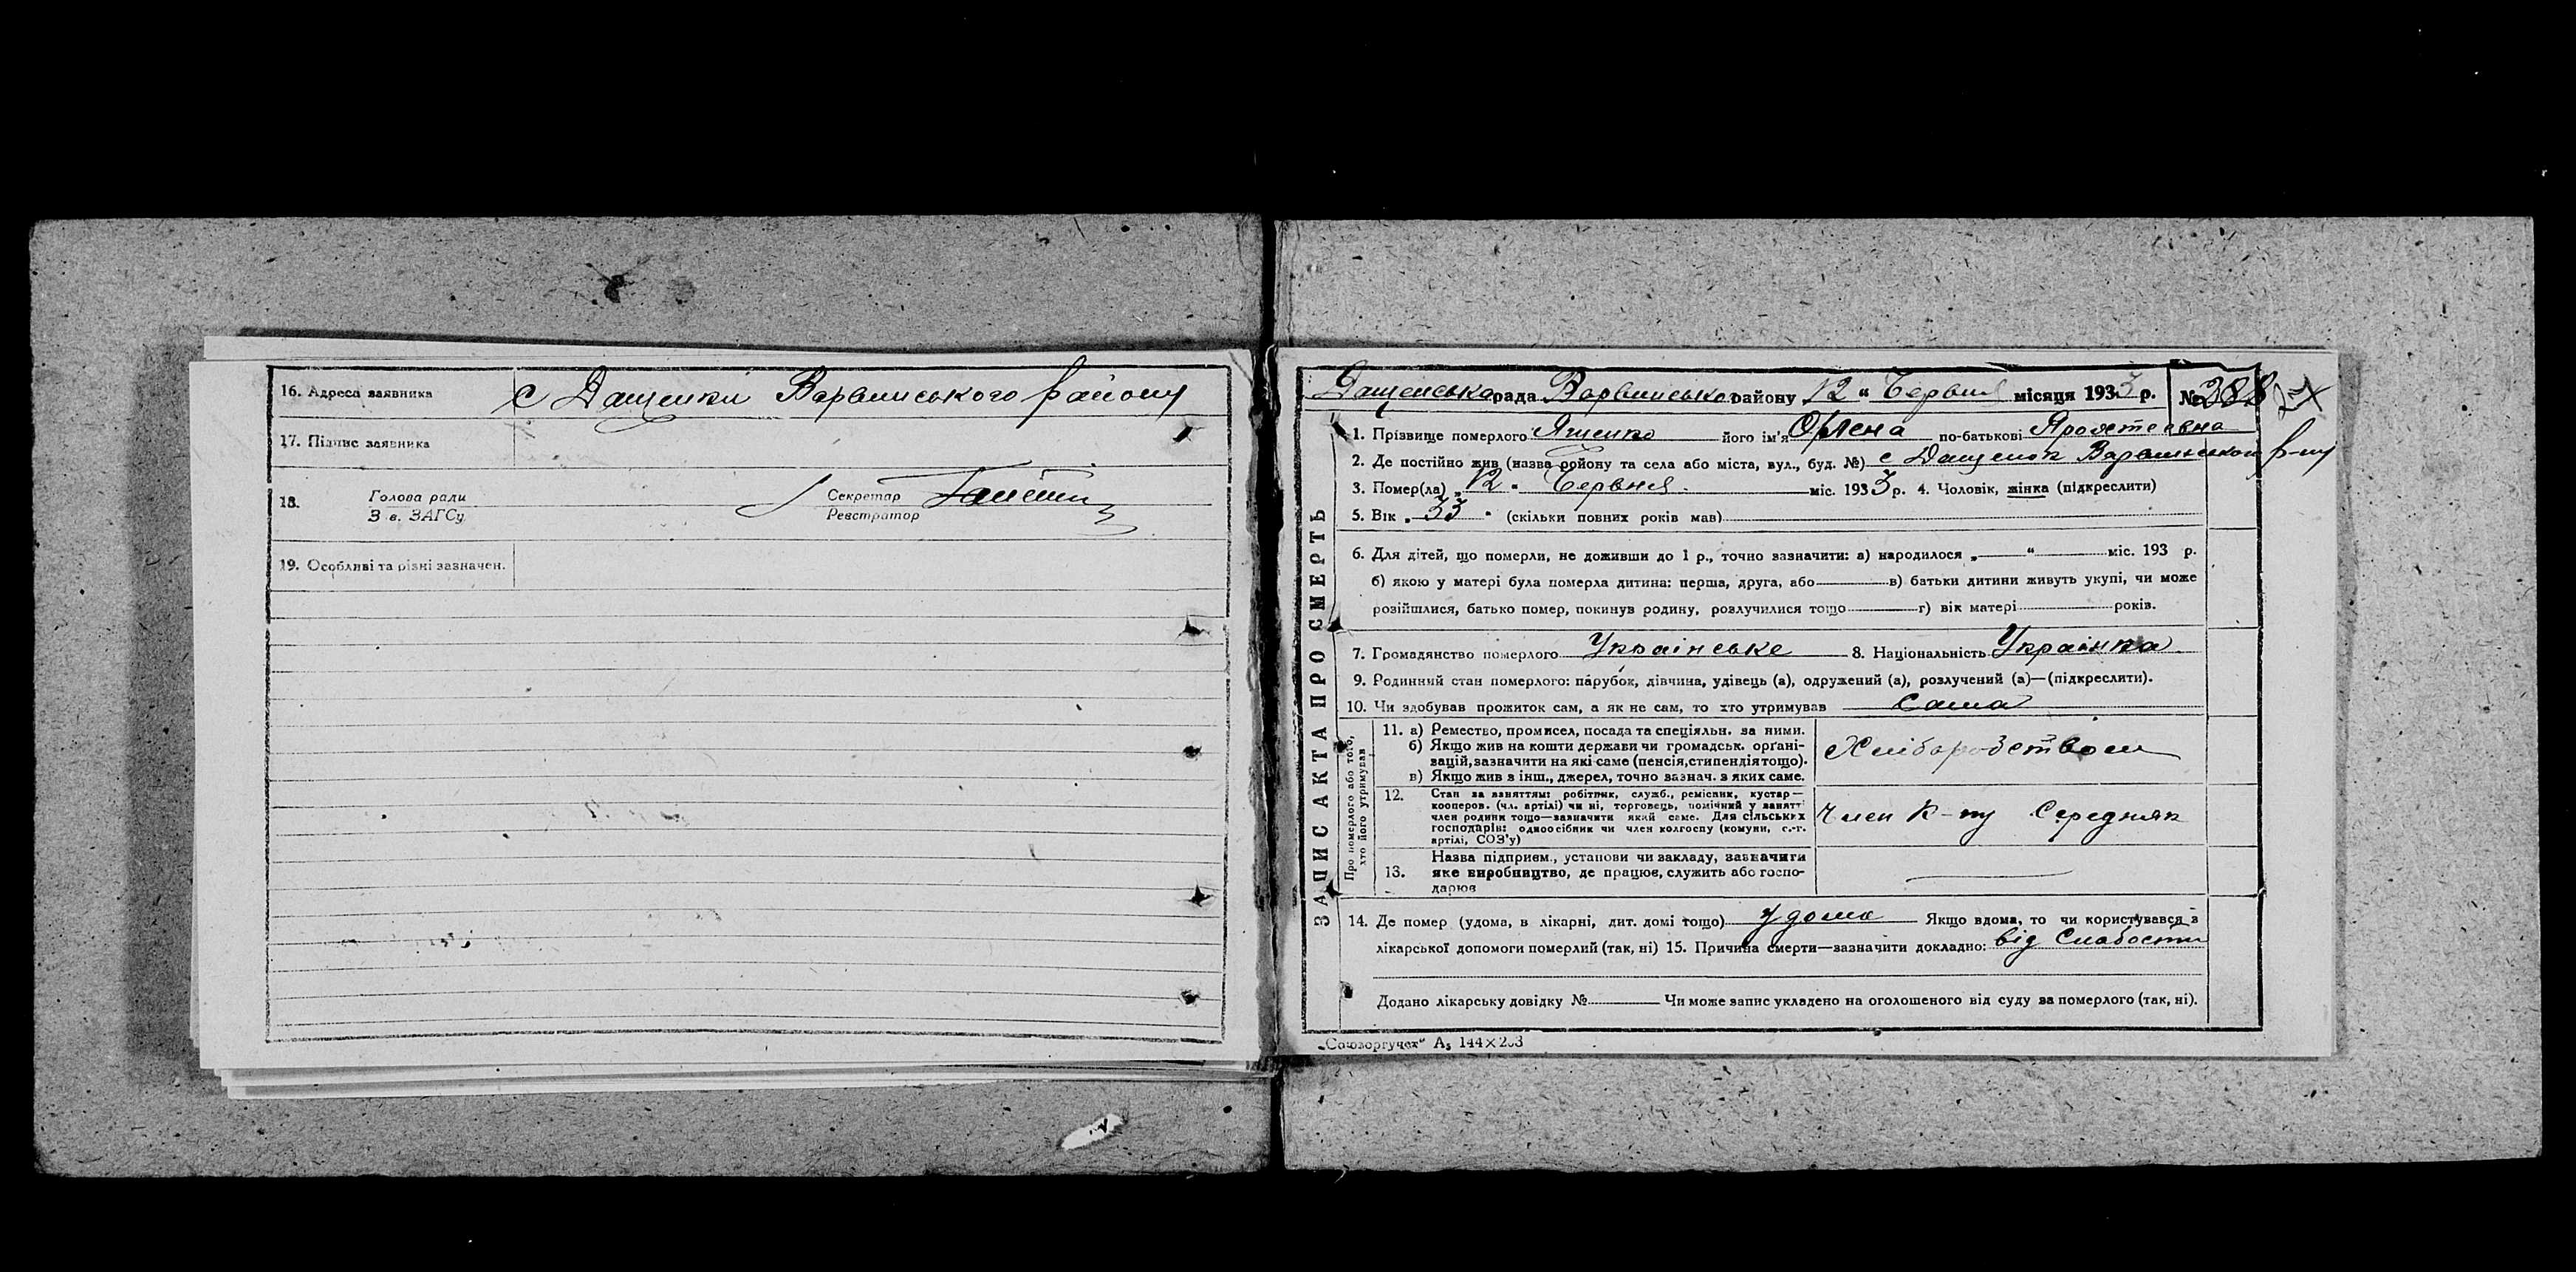 16. Адреса заявника с Дащенки Варвинського району
17. Підпис заявника
18. Голова ради
З в. ЗАГСу
Секретар
Реєстратор
19. Особливі та різні зазначен.
ЗАПИС АКТА ПРО СМЕРТЬ
Дащенська рада Варвинсько району „12“ Червня місяця 1933 р. № 288
1. Прізвище померлого Яшенко його ім'я Олена по-батькові
2. Де постійно жив (назва району та села або міста, вул., буд. №) с Дащенок Варвинського р-ну
3. Помер(ла) „12“ Червня міс. 1933 р. 4. Чоловік, жінка (підкреслити)
5. Вік „33“ (скільки повних років мав)
6. Для дітей, що померли, не доживши до 1 р., точно зазначити: а) народилося „ “ міс. 193 р.
б) якою у матері була померла дитина: перша, друга, або в) батьки дитини живуть укупі, чи може
розійшлися, батько помер, покинув родину, розлучилися тощо г) вік матері років.
7. Громадянство померлого Українське 8. Національність Українка
9. Родинний стан померлого: парубок, дівчина, удівець (а), одружений (а), розлучений (а)—(підкреслити).
10. Чи здобував прожиток сам, а як не сам, то хто утримував Сама
Про померлого або того, хто його утримував
11. а) Ремество, промисел, посада та спеціяльн. за ними.
б) Якщо жив на кошти держави чи громадськ. органі-
зацій, зазначити на які саме (пенсія, стипендія тощо).
в) Якщо жив з інш., джерел, точно зазнач. з яких саме.
Хліборобством
12. Стан за заняттям: робітник, служб., ремісник, кустар—
кооперов. (чл. артілі) чи ні, торговець, помічний у занятті
член родини тощо—зазначити який саме. Для сільських
господарів: одноосібник чи член колгоспу (комуни, с.-г.
артілі, СОЗ'у)
Член К-пу Середняк
13. Назва підприєм., установи чи закладу, зазначити
яке виробництво, де працює, служить або госпо-
дарює
14. Де помер (удома, в лікарні, дит. домі тощо) удома Якщо вдома, то чи користувався з
лікарської допомоги померлий (так, ні) 15. Причина смерти—зазначити докладно: від Слабости
Додано лікарську довідку № Чи може запис укладено на оголошеного від суду за померлого (так, ні).
„Союзоргучет“ А₅ 144×203